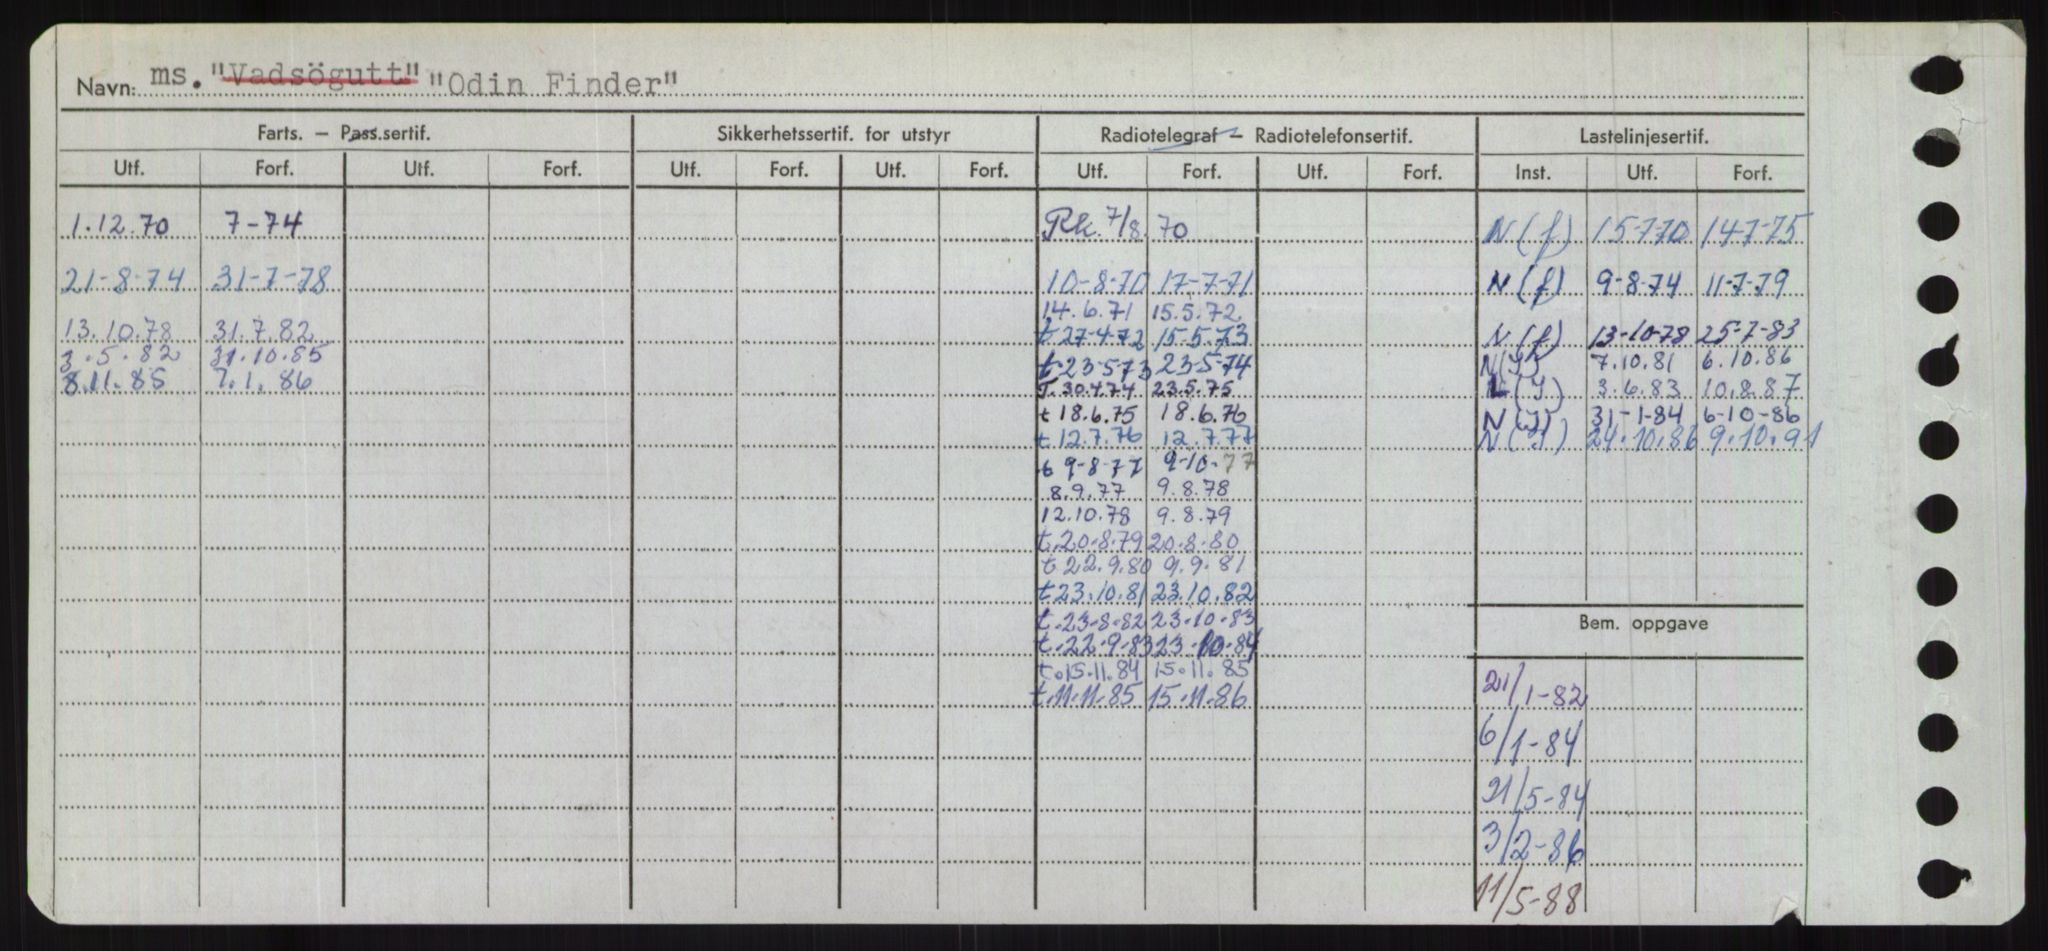 Navn: ms. "Vadsögutt" "Odin Finder"
Farts. — Pass.sertif. Sikkerhetssertif. for utstyr Radiotelegraf — Radiotelefonsertif. Lastelinjesertif.
Utf. Forf. Utf. Forf. Utf. Forf. Utf. Forf. Utf. Forf. Utf. Forf. Inst. Utf. Forf.
1.12.70 7-74 Rk. 7/8. 70 N(f) 15-7-70 14-7-75
21-8-74 31-7-78 10-8-70 17-7-71 N(f) 9-8-74 11-7-79
14.6.71 15.5.72
13.10.78 31.7.82 t 27-4-72 15-5-73 N(f) 13-10-78 25-7-83
3.5.82 31.10.85 t.23-5-73 23-5-74 7.10.81 6.10.86
8.11.85 7.1.86 T.30.4.74 23.5.75 3.6.83 10.8.87
t 18.6.75 18.6.76 31-1-84 6-10-86
t.12.7.76 12.7.77 24.10.86 9.10.91
t 9-8-77 9-10-77
8.9.77 9.8.78
12.10.78 9.8.79
t.20.8.79 20.8.80
t 22.9.80 9.9.81
t 23.10.81 23.10.82
t.23-8-82 23-10.83 Bem. oppgave
t.22.9-83 23.10-84
t.15.11.84 15.11.85 21/1-82
t.11.11.85 15.11.86
6/1-84
21/5-84
3/2-86
11/5-88